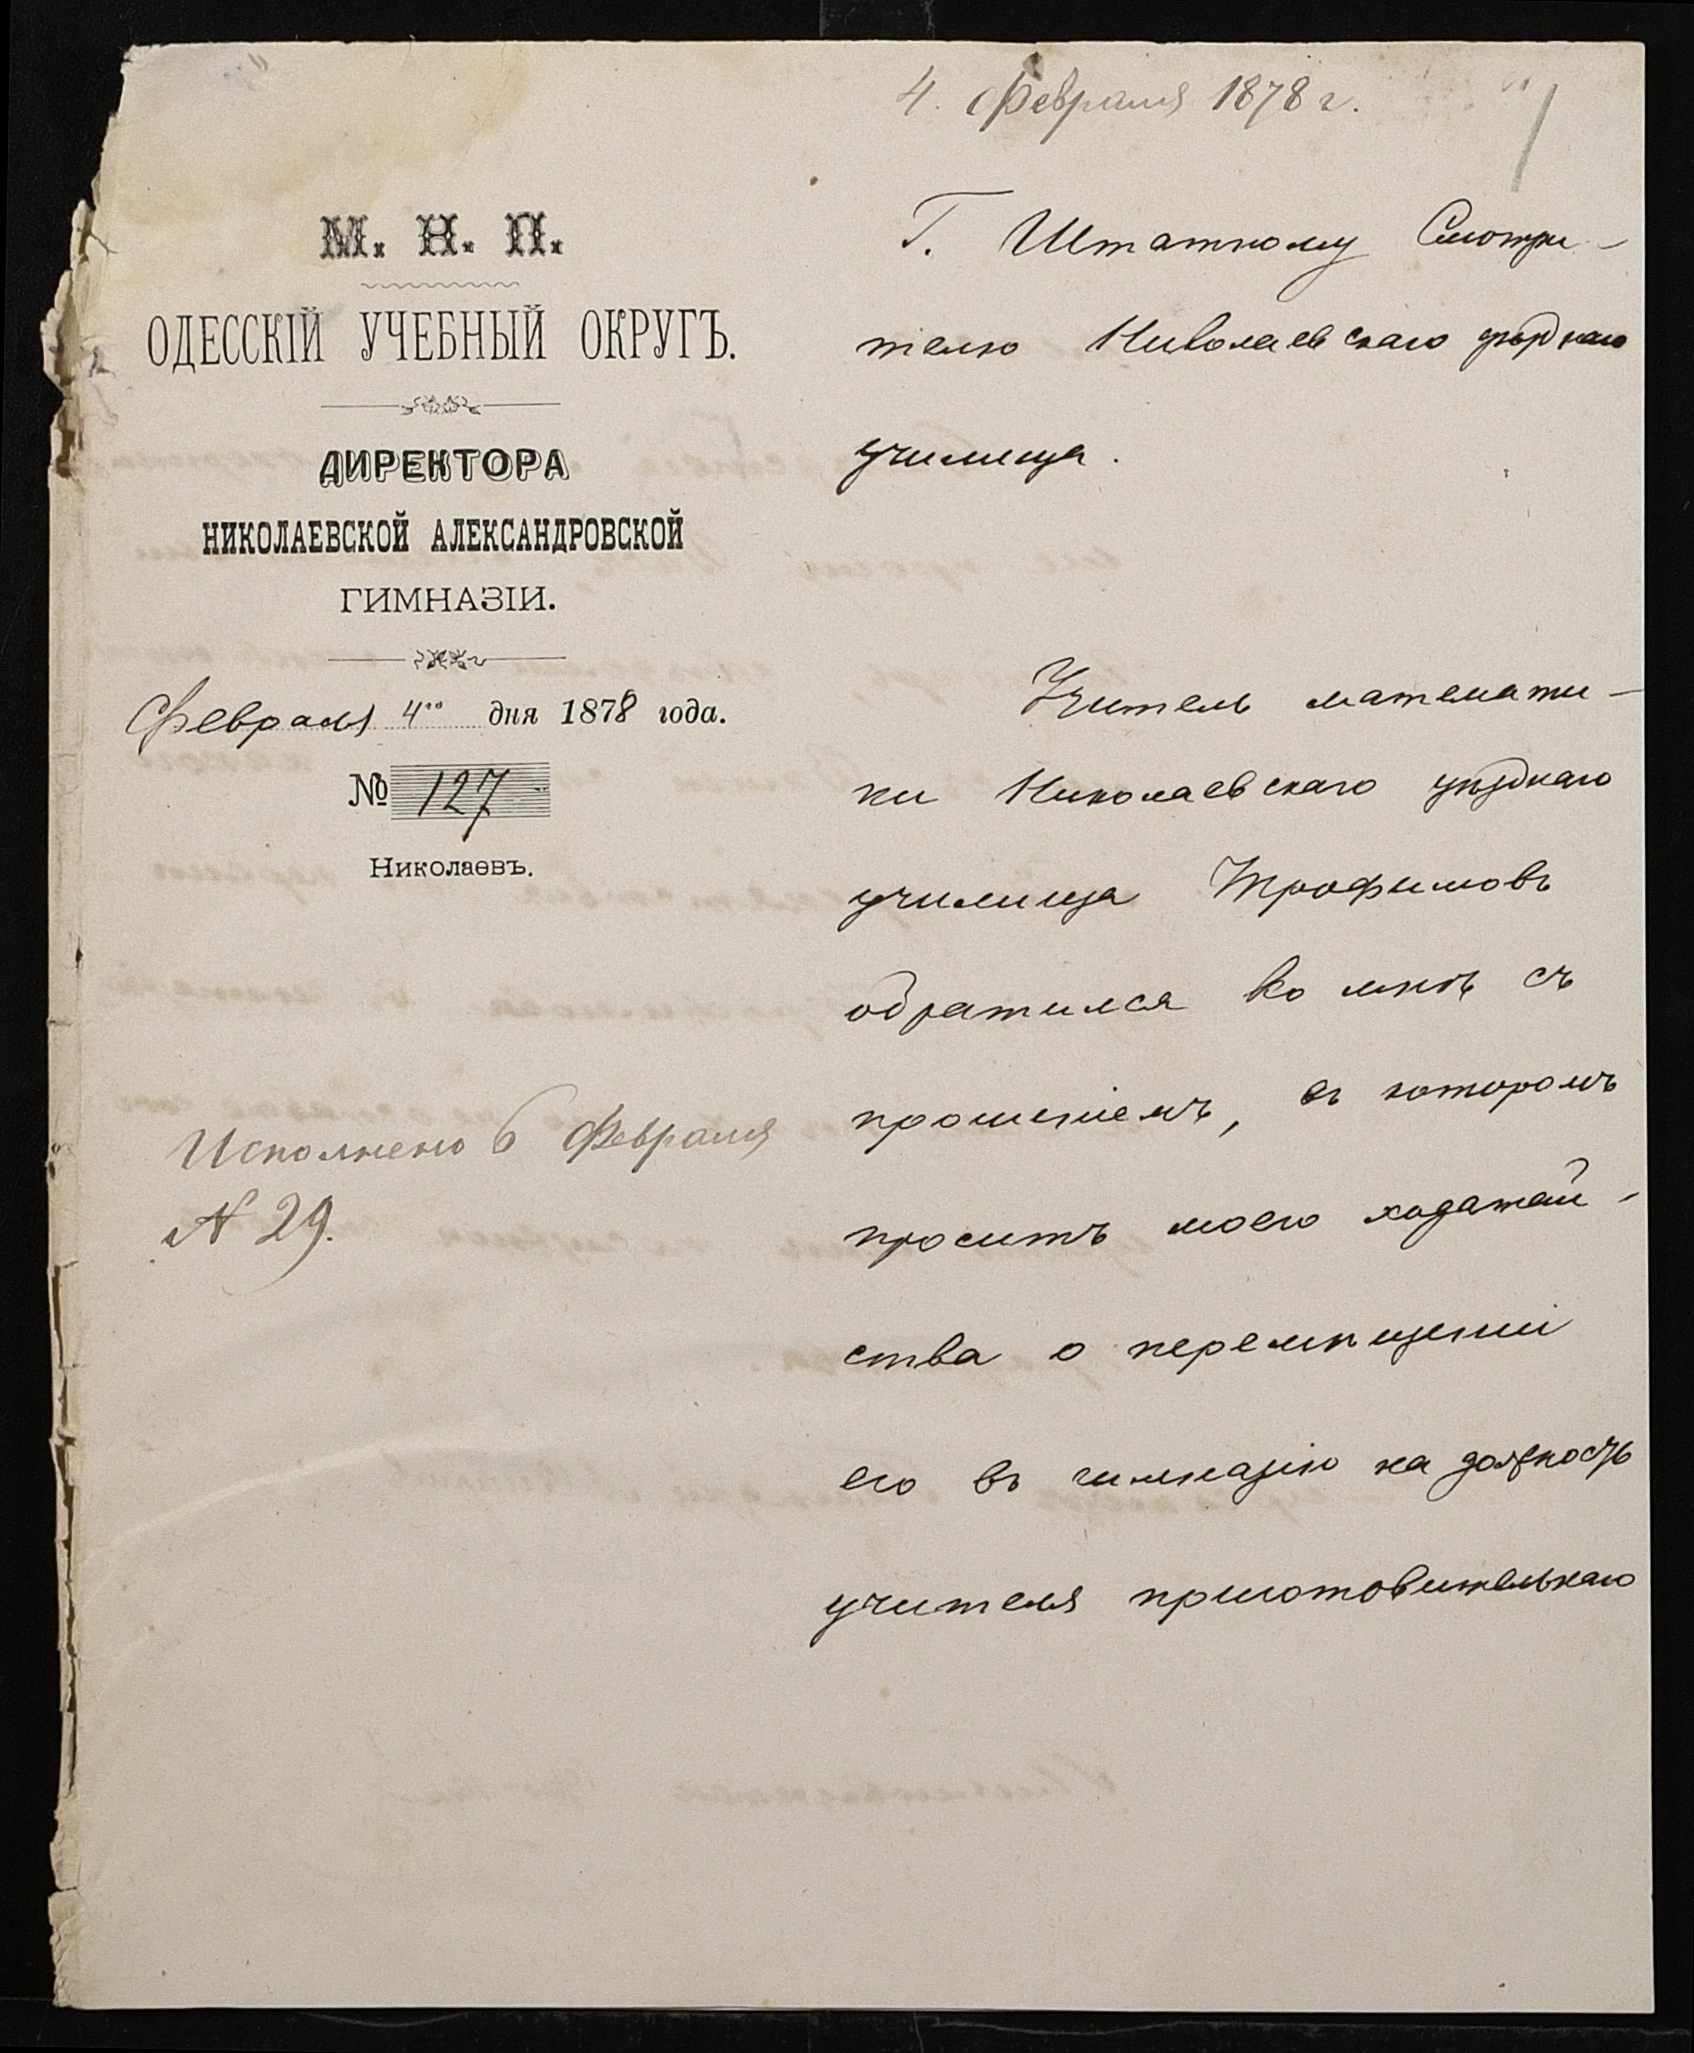 4. Февраля 1878 г.
М. Н. П.
ОДЕССКІЙ УЧЕБНЫЙ ОКРУГЪ.
ДИРЕКТОРА
НИКОЛАЕВСКОЙ АЛЕКСАНДРОВСКОЙ
ГИМНАЗІИ.
Февраля 4го дня 1878 года.
№ 127
Николаевъ.
Исполнено 6 Февраля
N 29.
Г. Штатному Смотри-
телю Николаевскаго уѣзднаго
училища.
Учитель математи-
ки Николаевскаго уѣзднаго
училища Трофимовъ
обратился ко мнѣ съ
прошеніемъ, въ которомъ
проситъ моего ходатай-
ства о перемѣщеніи
его въ гимназію на должность
учителя приготовительнаго